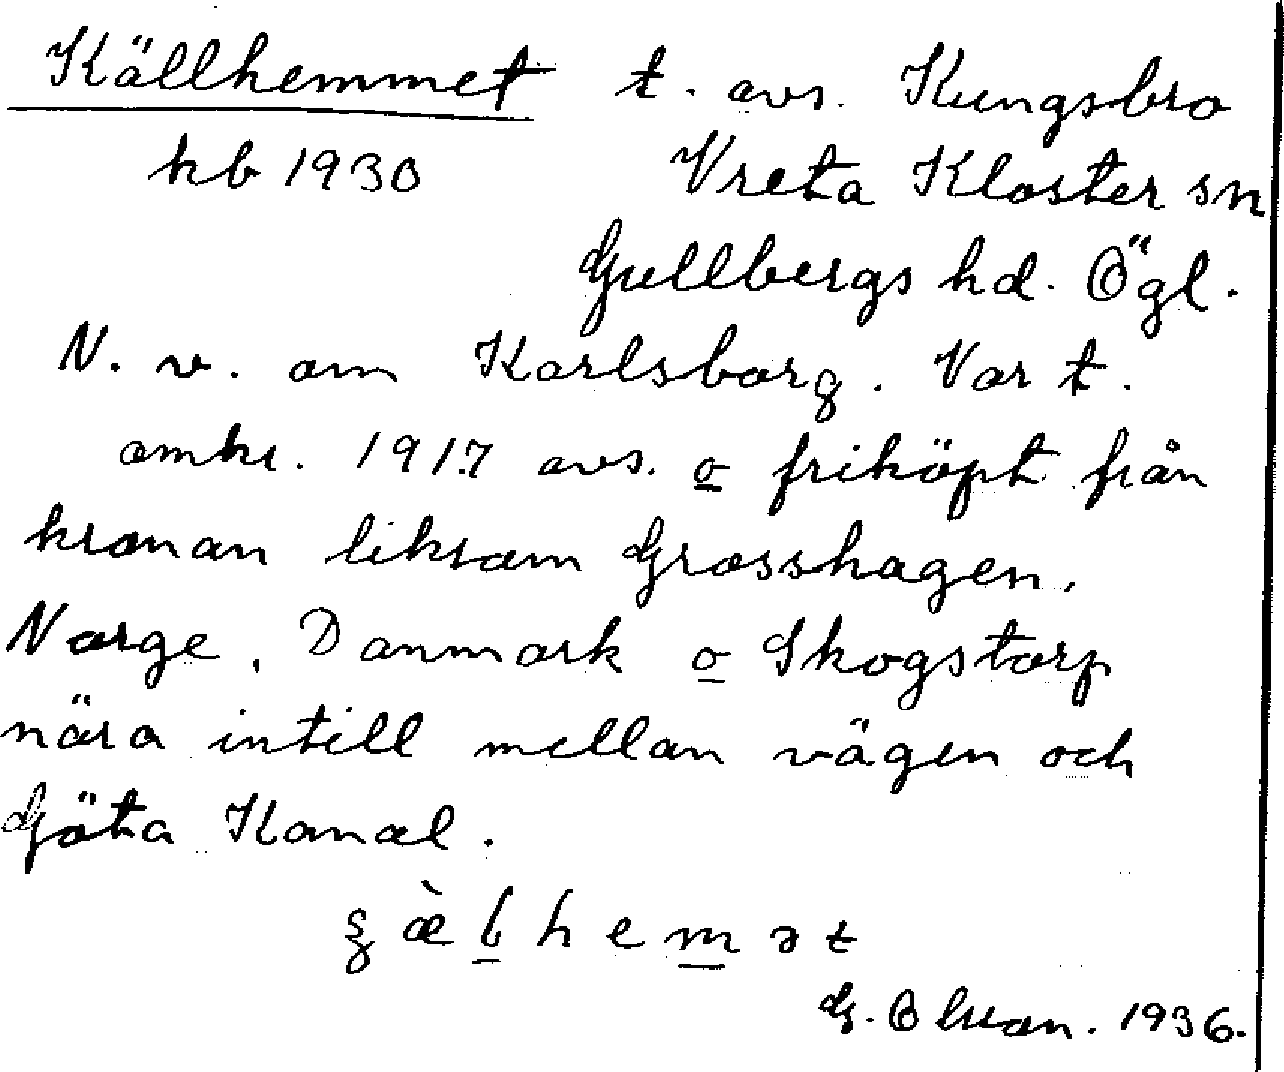 Källhemmet t. avs. Kungsbro
kb 1930 Vreta Kloster sn
Gullbergs hd. Ögl.
N. v. om Karlsborg. Var t.
omkr. 1917 avs. o friköpt från
kronan liksom Grosshagen,
Norge, Danmark o Skogstorp
nära intill mellan vägen och
Göta Kanal.
hemət
G. 1936.